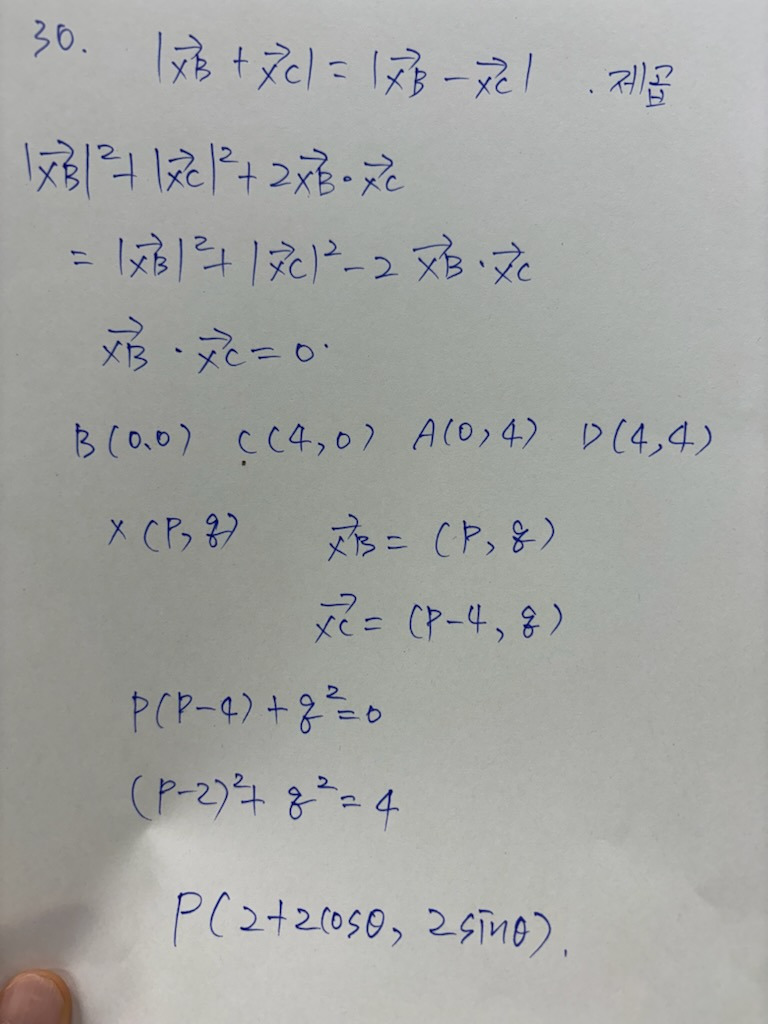 30. |XB→ + XC→| = |XB→ - XC→| . 제곱
|XB→|² + |XC→|² + 2XB→·XC→
= |XB→|² + |XC→|² - 2 XB→·XC→
XB→ · XC→ = 0.
B(0,0) C(4,0) A(0,4) D(4,4)
X(P,q) XB→ = (P,q)
XC→ = (P-4,q)
P(P-4) + q² = 0
(P-2)² + q² = 4
P(2+2cosθ, 2sinθ).